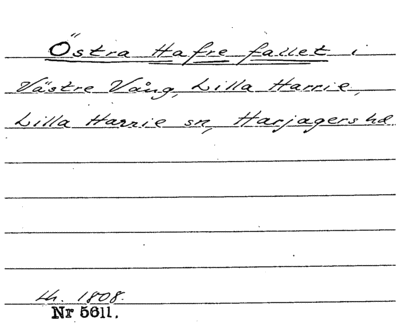 Östra Hafre fallet i
Västre Vång, Lilla Harrie,
Lilla Harrie sn, Harjagers hd
Lh. 1808.
Nr 5611.